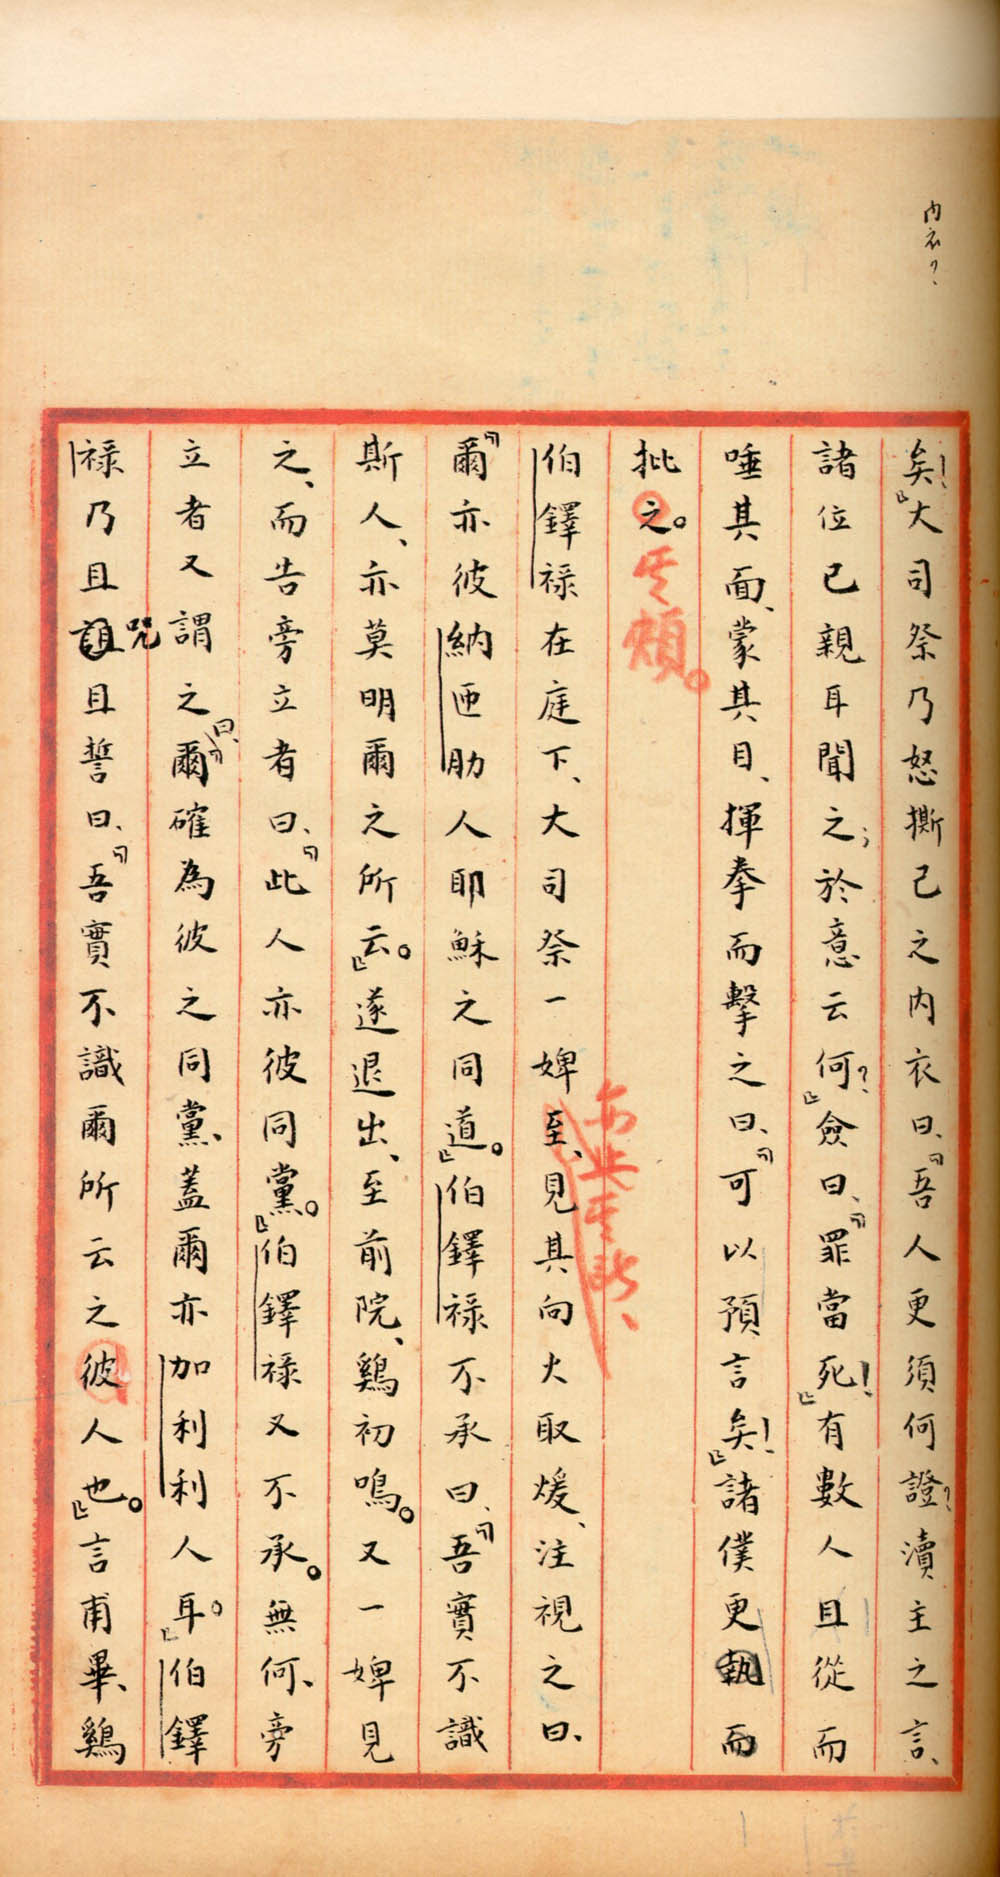 内衣？
矣！」大司祭乃怒撕己之内衣曰、「吾人更須何證？瀆主之言、
諸位已親耳聞之；於意云何？」僉曰、「罪當死！」有數人且從而
唾其面、蒙其目、揮拳而擊之曰、「可以預言矣！」諸僕更執而
批之。其頰。
伯鐸祿在庭下、大司祭一婢至、見其向火取煖、注視之曰、
「爾亦彼納匝肋人耶穌之同道。」伯鐸祿不承曰、「吾實不識
斯人、亦莫明爾之所云。」遂退出、至前院、鷄初鳴。又一婢見
之、而告旁立者曰、「此人亦彼同黨。」伯鐸祿又不承。無何、旁
立者又謂之曰、「爾確為彼之同黨、蓋爾亦加利利人耳。」伯鐸
祿乃且詛咒且誓曰、「吾實不識爾所云之彼人也。」言甫畢、鷄